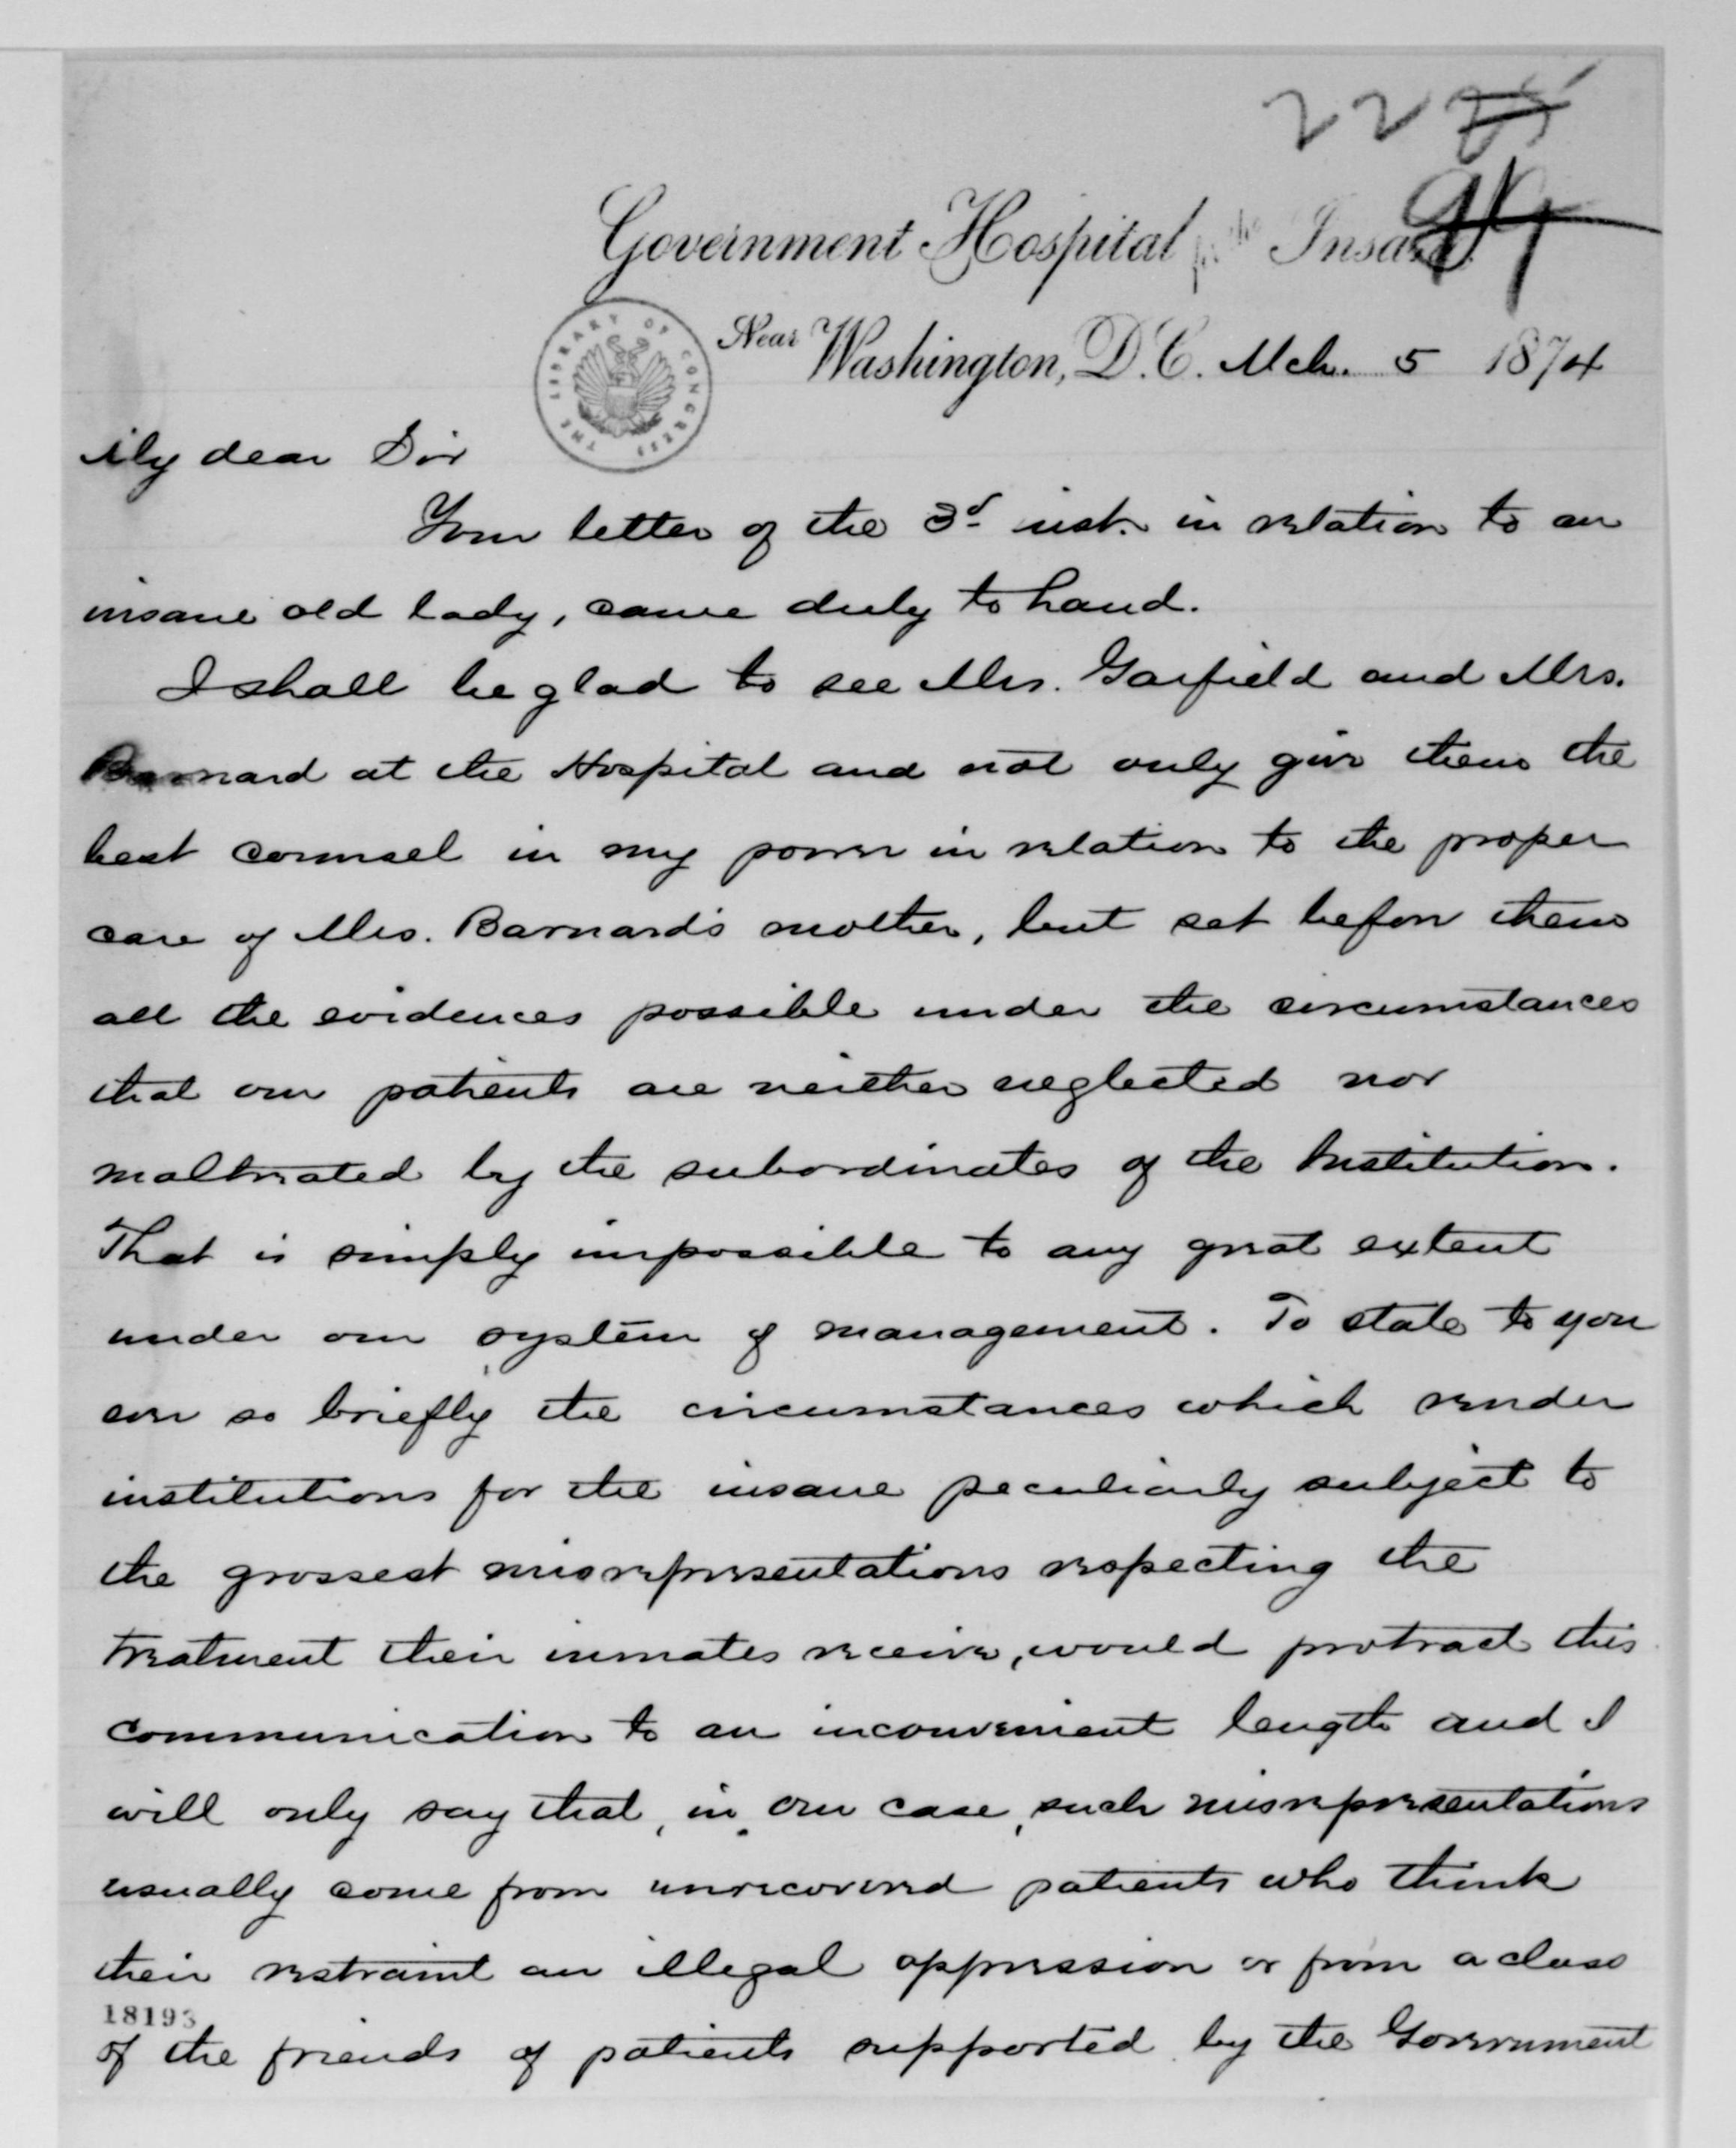 22
Government Hospital for the Insane
THE LIBRARY OF CONGRESS
Near Washington, D.C. Mch. 5 1874
My dear Sir
Your letter of the 3d inst. in relation to an
insane old lady, came duly to hand.
I shall be glad to see Mrs. Garfield and Mrs.
Barnard at the Hospital and not only give them the
best counsel in my power in relation to the proper
care of Mrs. Barnard's mother, but set before them
all the evidences possible under the circumstances
that our patients are neither neglected nor
maltreated by the subordinates of the Institution.
That is simply impossible to any great extent
under our system of management. To state to you
ever so briefly the circumstances which render
institutions for the insane peculiarly subject to
the grossest misrepresentations respecting the
treatment their inmates receive, would protract this
communication to an inconvenient length and I
will only say that, in our case, such misrepresentations
usually come from unrecovered patients who think
their restraint an illegal oppression or from a class
18193
of the friends of patients supported by the Government